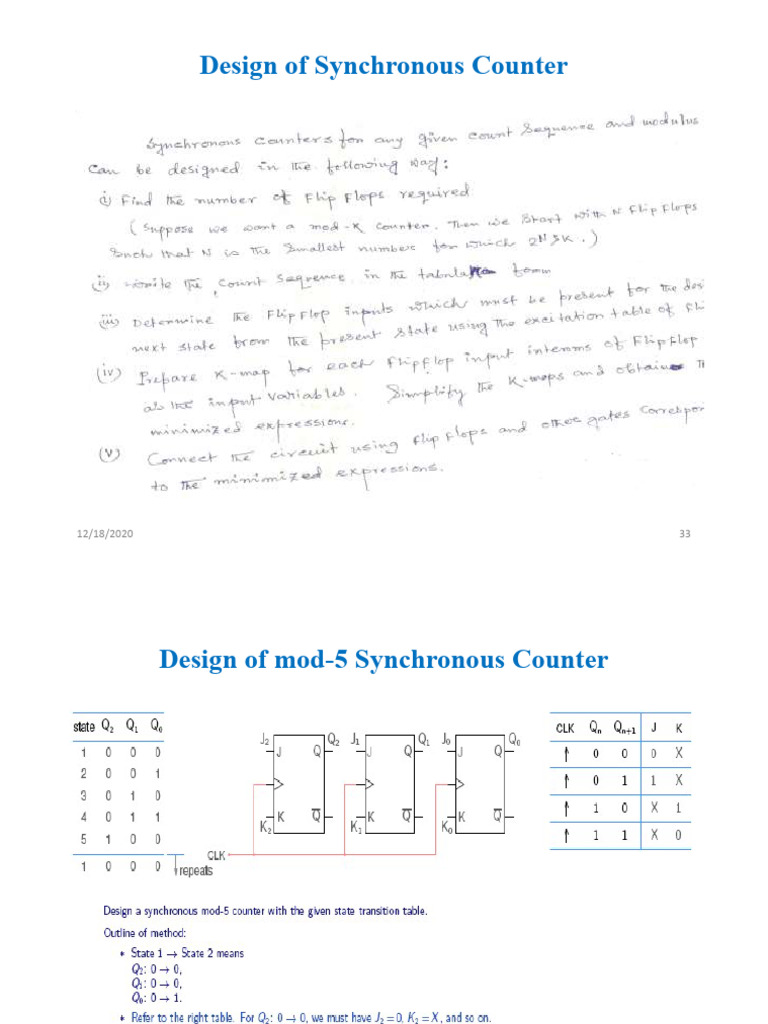 Design of Synchronous Counter
Synchronous counters for any given count sequence and modulus
can be designed in the following way:
(i) Find the number of Flip Flops required
(Suppose we want a mod-K counter. Then we start with N Flip Flops
such that N is the smallest number for which 2^N ≥ K.)
(ii) Write the count sequence in the tabular form
(iii) Determine the FlipFlop inputs which must be present for the desi
next state from the present state using the excitation table of Fli
(iv) Prepare K-map for each flipflop input in terms of FlipFlop
as the input variables. Simplify the K-maps and obtain th
minimized expressions.
(v) Connect the circuit using flip flops and other gates correspon
to the minimized expressions.
12/18/2020 33
Design of mod-5 Synchronous Counter
state Q2 Q1 Q0
1 0 0 0
2 0 0 1
3 0 1 0
4 0 1 1
5 1 0 0
1 0 0 0
repeats
J2 Q2 J1 Q1 J0 Q0
J Q J Q J Q
K Q̅ K Q̅ K Q̅
K2 K1 K0
CLK
CLK Qn Qn+1 J K
↑ 0 0 0 X
↑ 0 1 1 X
↑ 1 0 X 1
↑ 1 1 X 0
Design a synchronous mod-5 counter with the given state transition table.
Outline of method:
* State 1 → State 2 means
Q2: 0 → 0,
Q1: 0 → 0,
Q0: 0 → 1.
* Refer to the right table. For Q2: 0 → 0, we must have J2 = 0, K2 = X, and so on.